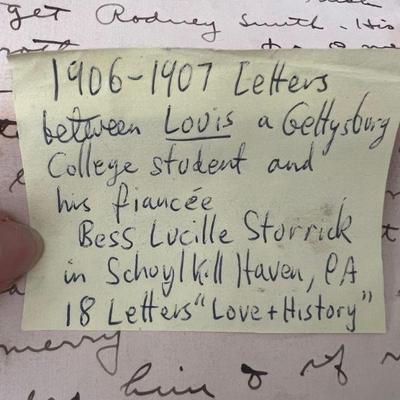 get Rodney Smith. His
1906-1907 Letters
between Louis a Gettysburg
College student and
his fiancée
Bess Lucille Storrick
in Schoylkill Haven, PA
18 Letters "Love + History"
merry
him